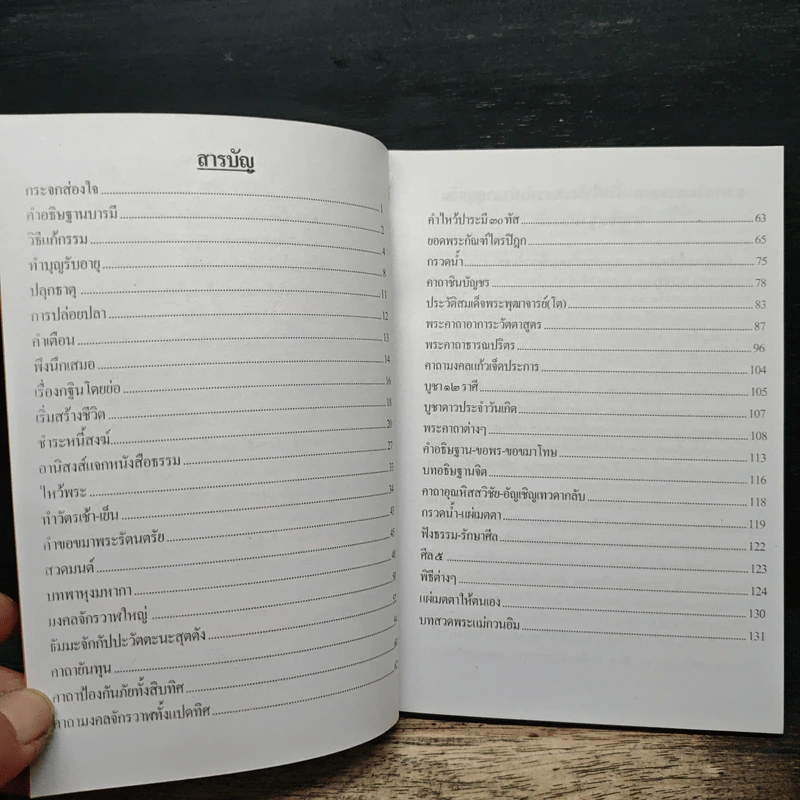 สารบัญ
กระจกส่องใจ 1
คำอธิษฐานบารมี 2
วิธีแก้กรรม 4
ทำบุญรับอายุ 8
ปลุกธาตุ 11
การปล่อยปลา 12
คำเตือน 13
พึงนึกเสมอ 14
เรื่องกฐินโดยย่อ 16
เริ่มสร้างชีวิต 18
ชำระหนี้สงฆ์ 20
อานิสงส์แจกหนังสือธรรม 27
ไหว้พระ 33
ทำวัตรเช้า-เย็น 34
คำขอขมาพระรัตนตรัย 43
สวดมนต์ 45
บทพาหุงมหากา 48
มงคลจักรวาฬใหญ่ 50
ธัมมะจักกัปปะวัตตะนะสุตตัง 52
คาถายันทุน 59
คาถาป้องกันภัยทั้งสิบทิศ 60
คาถามงคลจักรวาฬทั้งแปดทิศ 62
คำไหว้ประมี ๓๐ ทัส 63
ยอดพระกัณฑ์ไตรปิฎก 65
กรวดน้ำ 75
คาถาชินบัญชร 78
ประวัติสมเด็จพระพุฒาจารย์(โต) 83
พระคาถาอาการะวัตตาสูตร 87
พระคาถาธารณปริตร 96
คาถามงคลแก้วเจ็ดประการ 104
บูชา ๑๒ ราศี 105
บูชาดาวประจำวันเกิด 107
พระคาถาต่างๆ 108
คำอธิษฐาน-ขอพร-ขอขมาโทษ 113
บทอธิษฐานจิต 116
คาถาอุณหิสสวิชัย-อัญเชิญเทวดากลับ 118
กรวดน้ำ-แผ่เมตตา 119
ฟังธรรม-รักษาศีล 122
ศีล ๕ 123
พิธีต่างๆ 124
แผ่เมตตาให้ตนเอง 130
บทสวดพระแม่กวนอิม 131